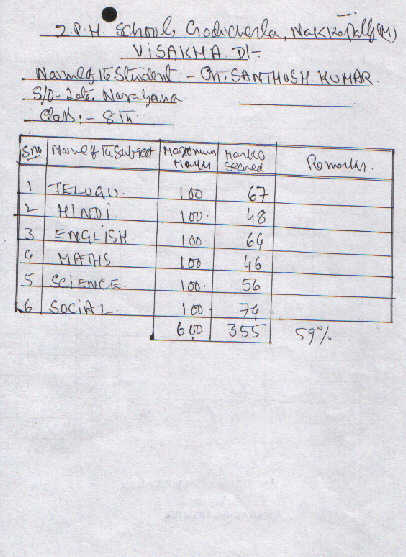 Z.P.H School Godicherla, Nakkapalli(M)
VISAKHA. Dt-
Name of the Student - Ch. SANTHOSH KUMAR
S/o - Late. Narayana
Class:- 8th
S.no Name of the Subject Maximum Marks Marks Secured Remarks.
1 TELUGU 100 67
2 HINDI 100. 48
3 ENGLISH 100 64
4 MATHS 100 46
5 SCIENCE 100. 56
6 SOCIAL. 100. 74
600 355 59%